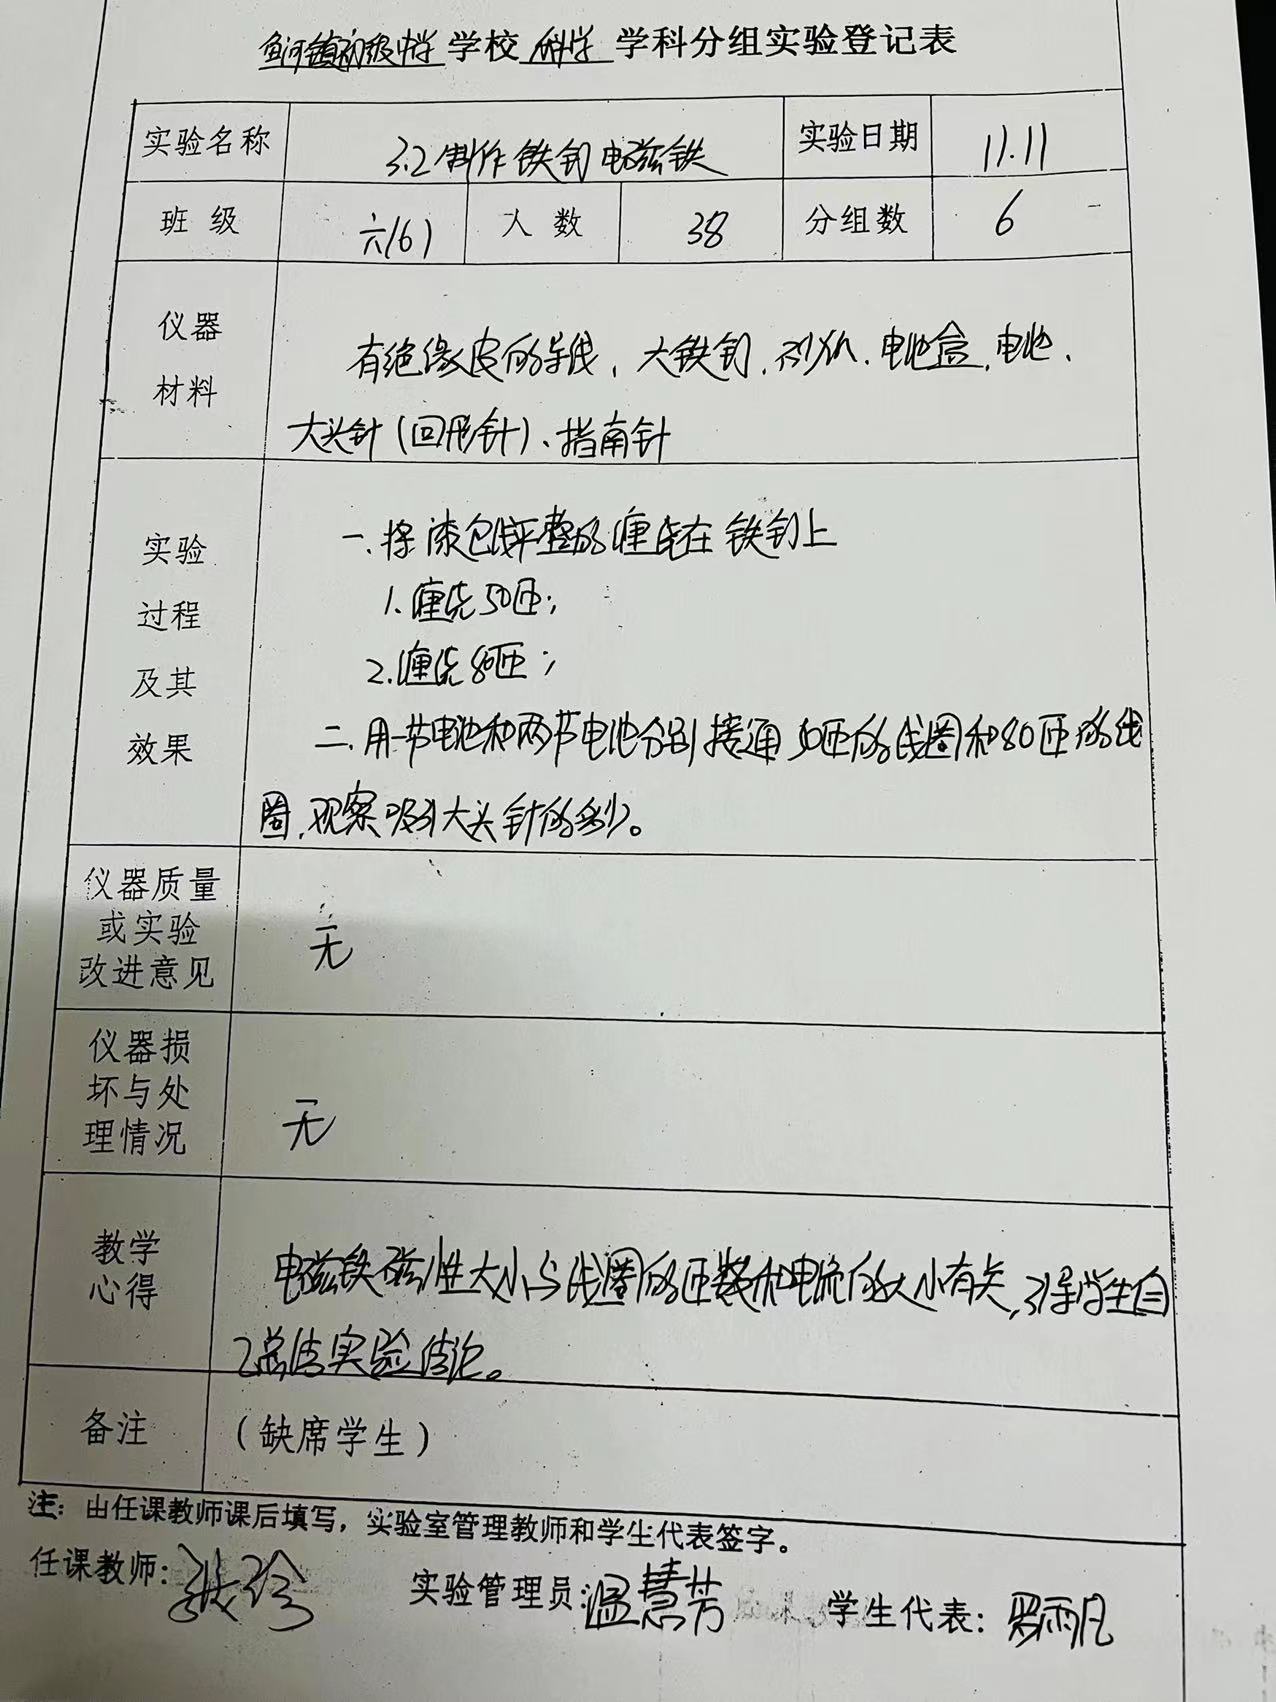 鱼河镇初级中学 学校 科学 学科分组实验登记表
实验名称 3.2制作铁钉电磁铁 实验日期 11.11
班 级 六(6) 人 数 38 分组数 6
仪器
材料
有绝缘皮的导线、大铁钉、电池盒、电池、
大头针(回形针)、指南针
实验
过程
及其
效果
一、将漆包线平整的缠绕在铁钉上
1.缠绕50匝;
2.缠绕80匝;
二、用一节电池和两节电池分别接通50匝的线圈和80匝的线
圈,观察吸引大头针的多少。
仪器质量
或实验
改进意见
无
仪器损
坏与处
理情况
无
教学
心得
电磁铁磁性大小与线圈的匝数和电流的大小有关,引导学生自
己总结实验结论。
备注 (缺席学生)
注:由任课教师课后填写,实验室管理教师和学生代表签字。
任课教师: 实验管理员:温慧芳 学生代表:罗雨凡